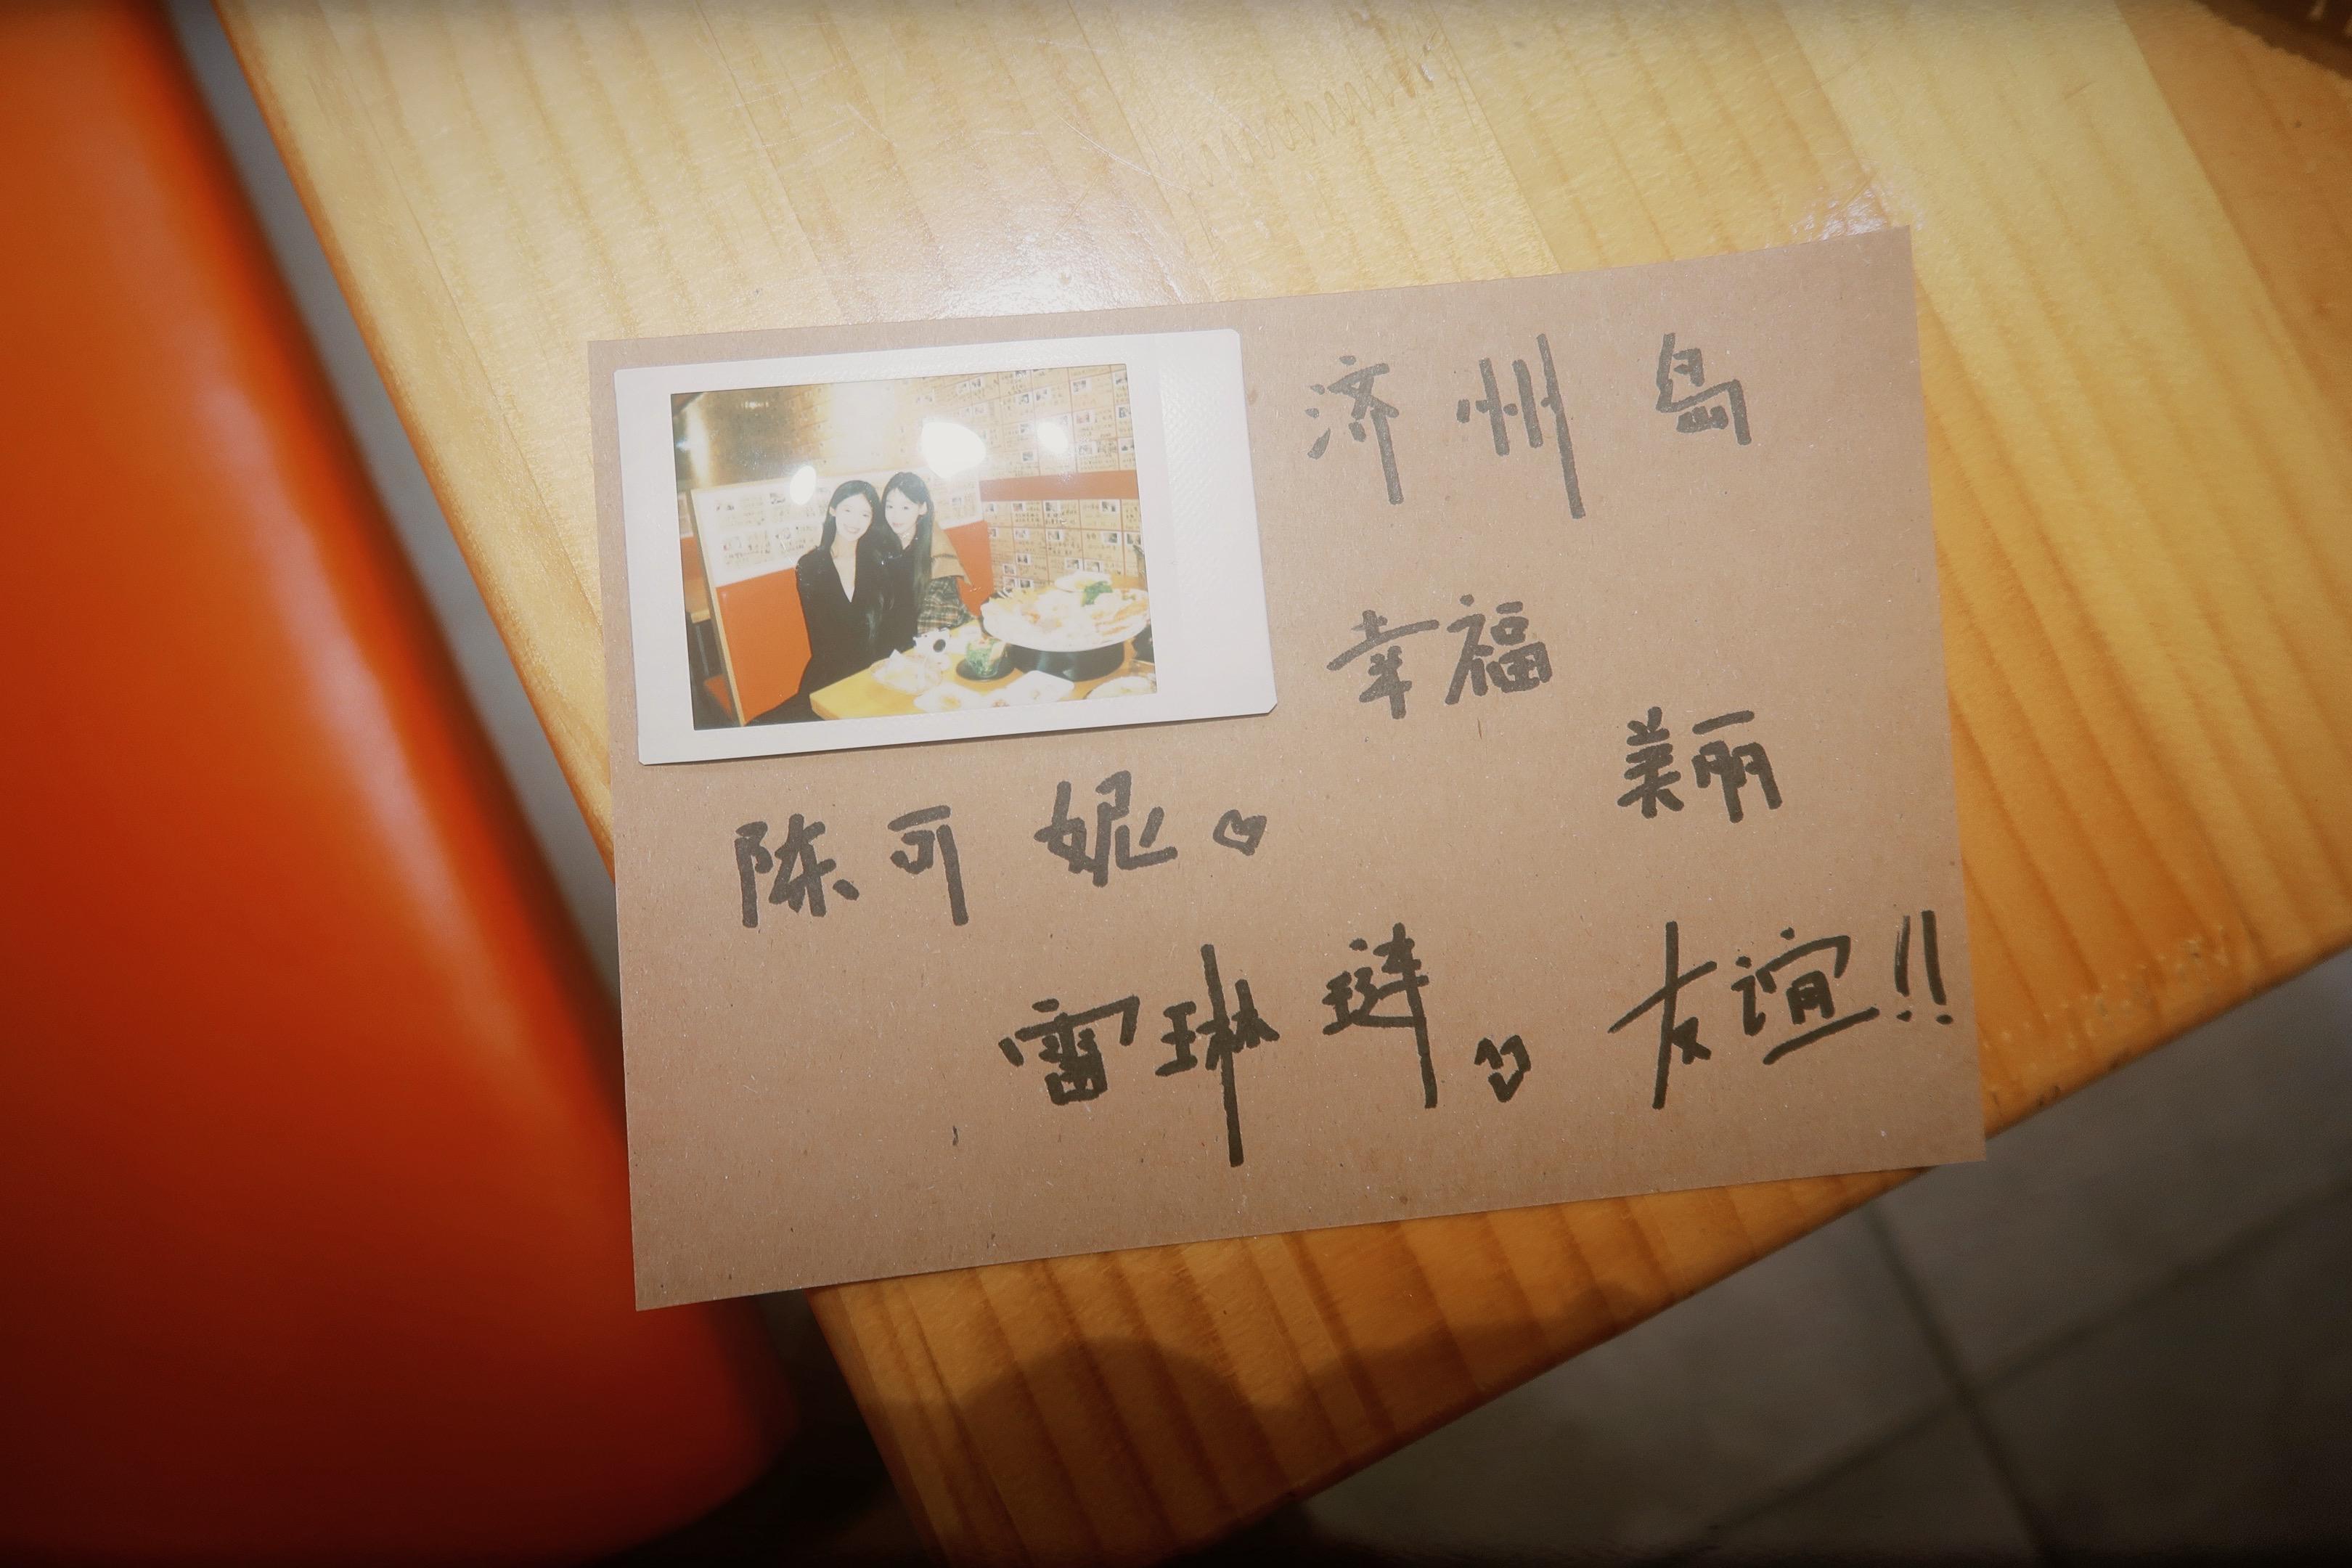 济州岛
幸福
美丽
陈可妮♡
雷琳琎♡
友谊!!